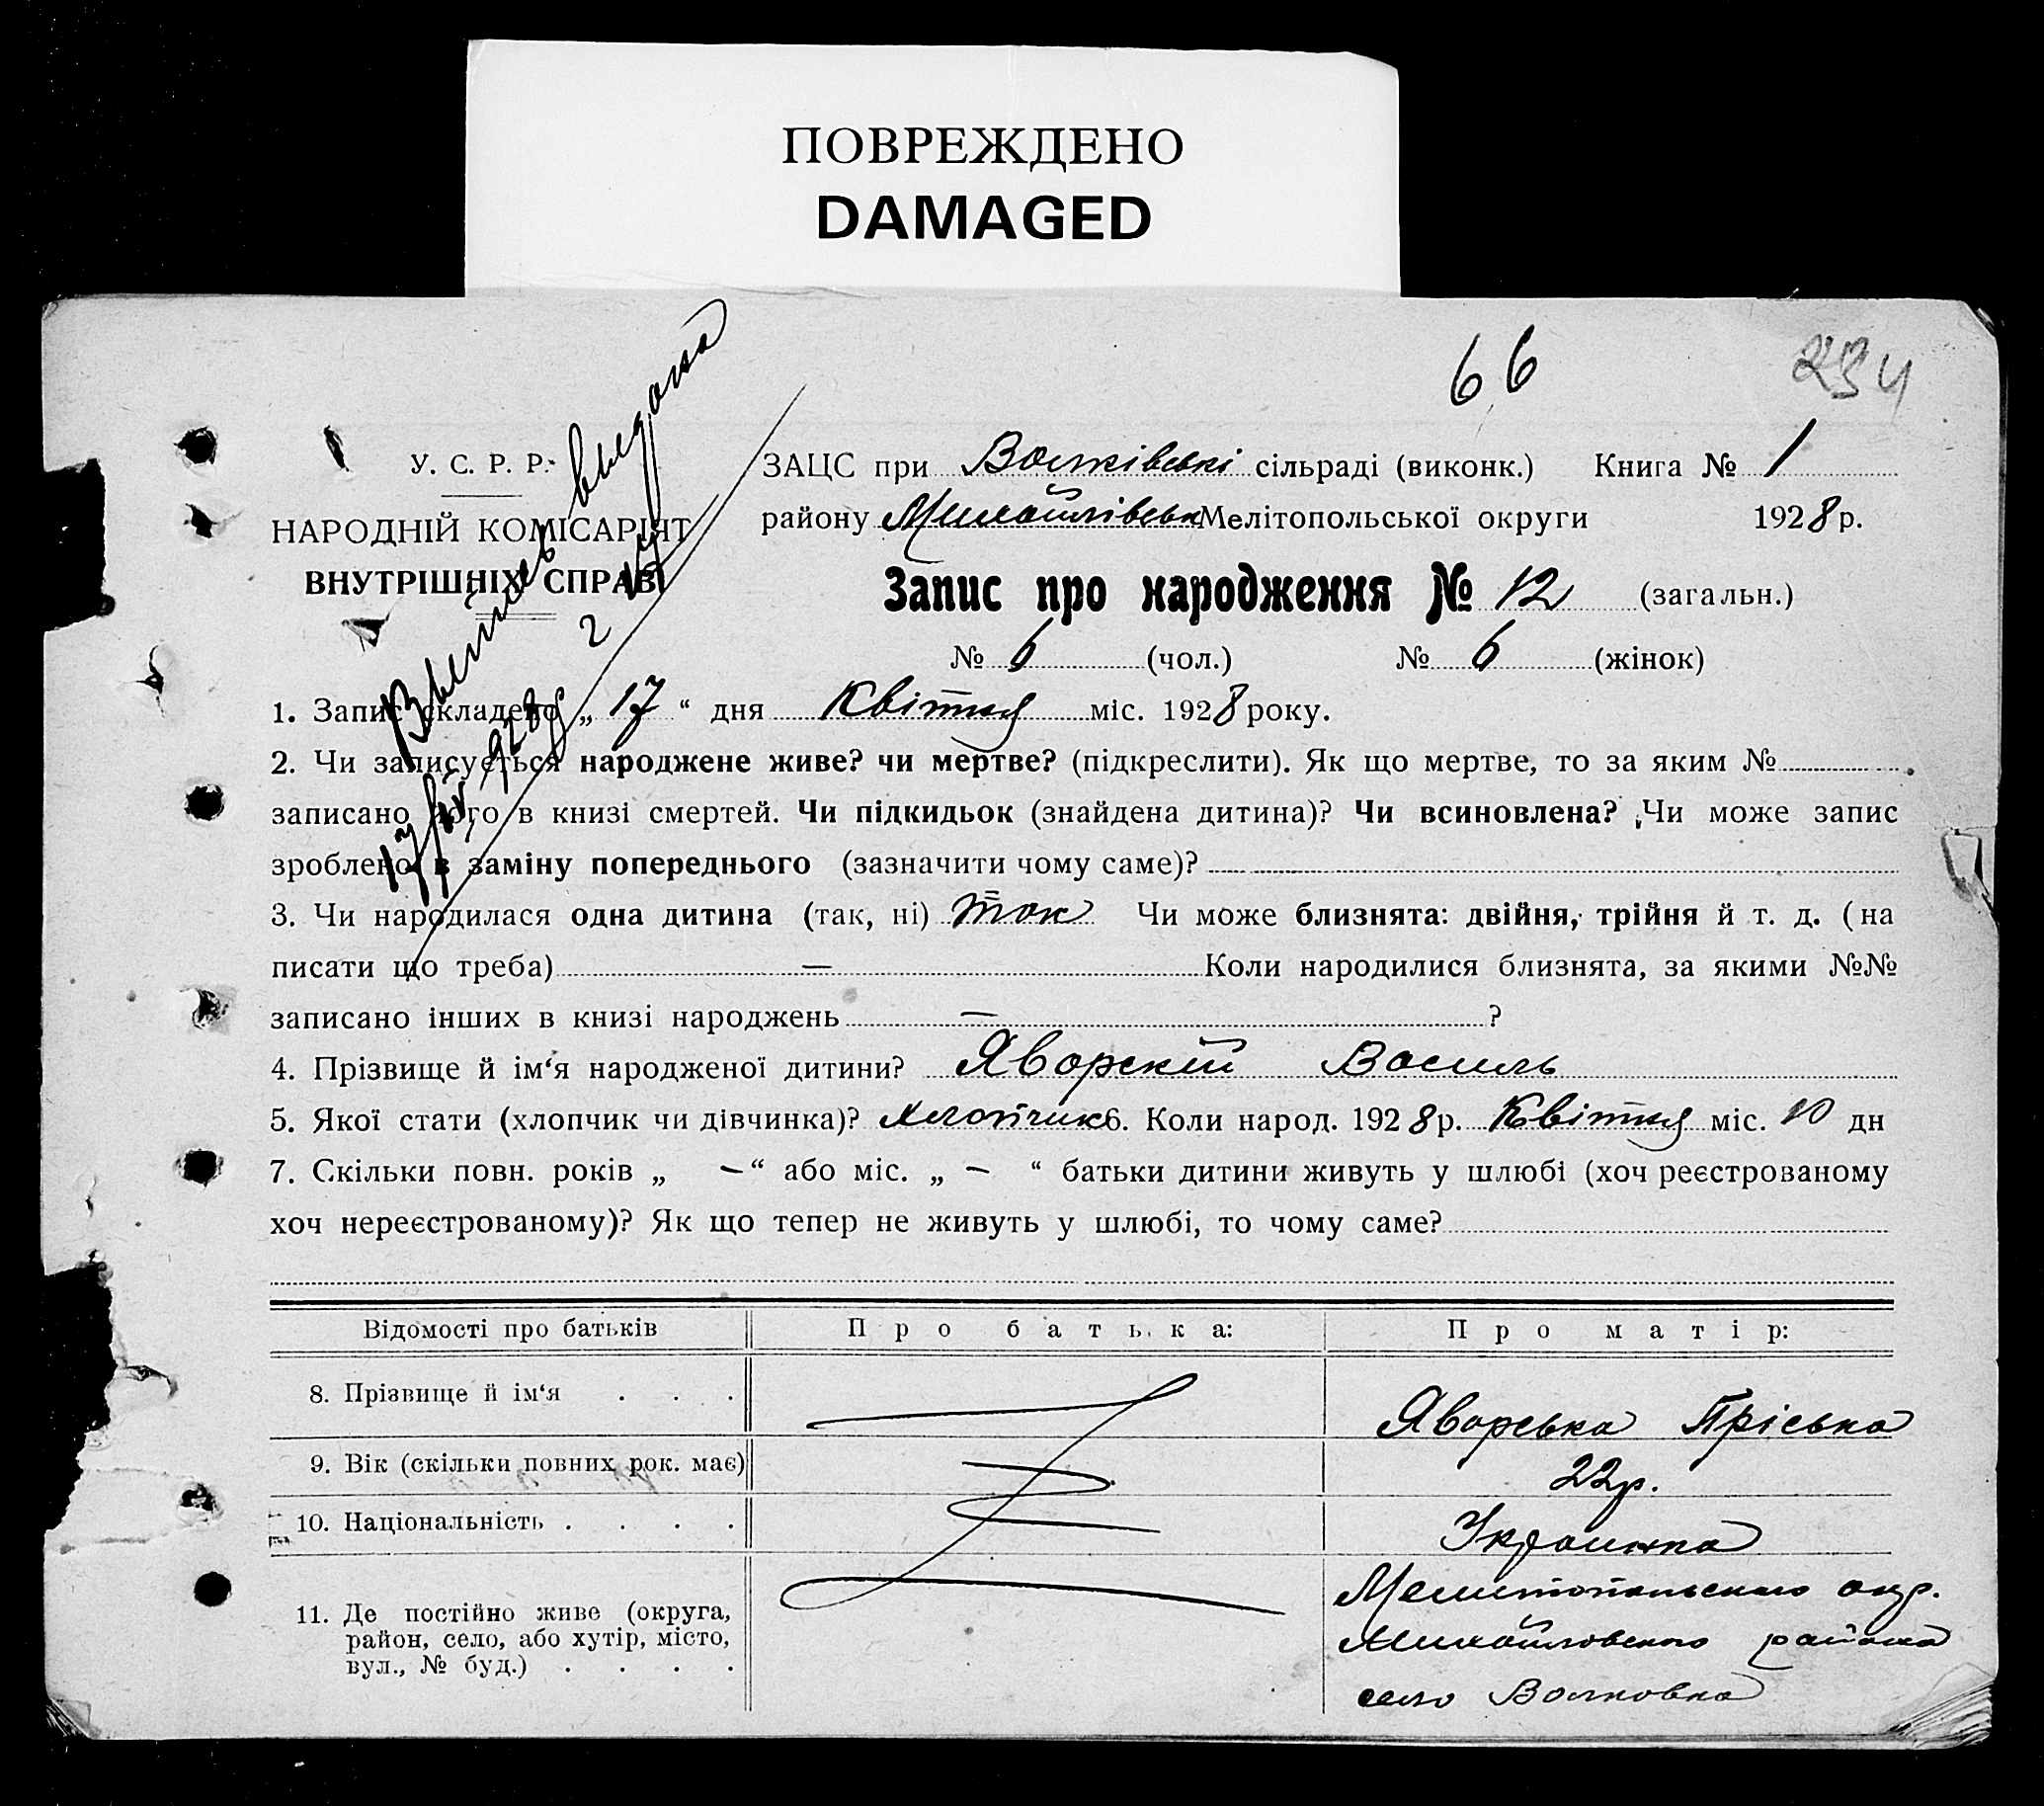 ПОВРЕЖДЕНО
DAMAGED
66
234
У. С. Р. Р.
НАРОДНІЙ КОМІСАРІЯТ
ВНУТРІШНІХ СПРАВ
Выпись выдана
17/IV 928 г
ЗАЦС при Волківські сільраді (виконк.) Книга № 1
району Михайлівськ Мелітопольської округи 1928 р.
Запис про народження № 12 (загальн.)
№ 6 (чол.) № 6 (жінок)
1. Запис складено „ 17 “ дня Квітня міс. 1928 року.
2. Чи записується народжене живе? чи мертве? (підкреслити). Як що мертве, то за яким №
записано його в книзі смертей. Чи підкидьок (знайдена дитина)? Чи всиновлена? Чи може запис
зроблено в заміну попереднього (зазначити чому саме)?
3. Чи народилася одна дитина (так, ні) так Чи може близнята: двійня, трійня й т. д. (на
писати що треба) — Коли народилися близнята, за якими №№
записано інших в книзі народжень — ?
4. Прізвище й ім‘я народженої дитини? Яворскій Василь
5. Якої стати (хлопчик чи дівчинка)? хлопчик 6. Коли народ. 1928 р. Квітня міс. 10 дн
7. Скільки повн. років „ — “ або міс. „ — “ батьки дитини живуть у шлюбі (хоч реєстрованому
хоч нереєстрованому)? Як що тепер не живуть у шлюбі, то чому саме?
Відомості про батьків Про батька: Про матір:
8. Прізвище й ім‘я . . . Яворська Пріська
9. Вік (скільки повних рок. має) 22 р.
10. Національність . . . . Украинка
11. Де постійно живе (округа,
район, село, або хутір, місто,
вул., № буд.) . . . .
Мелитопольского окр.
Михайловского района
село Волковка